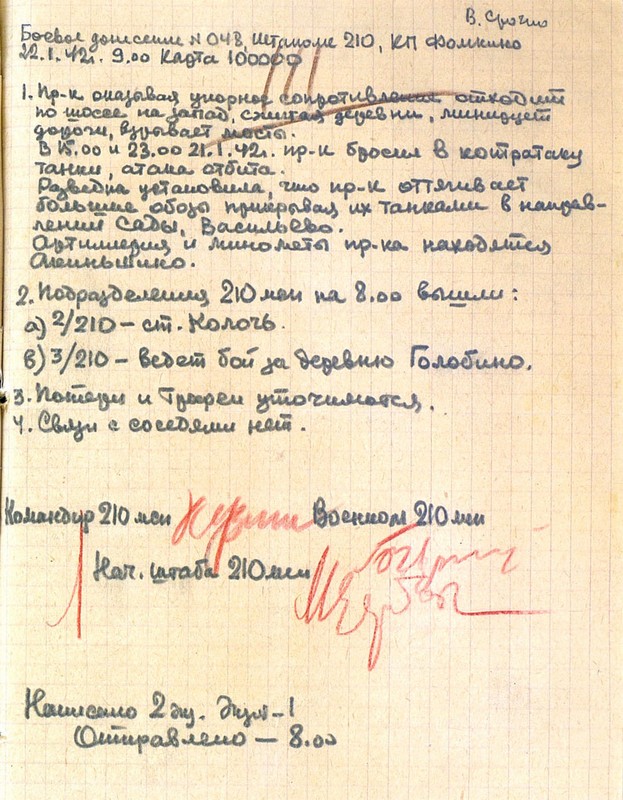 В. Срочно
Боевое донесение N 048, Штаполк 210, КП Фомкино
22.1.42г. 9.00 Карта 100000
1. Пр-к оказывая упорное сопротивление отходит
по шоссе на запад, сжигая деревни, минирует
дороги, взрывает мосты.
В 15.00 и 23.00 21.1.42г. пр-к бросил в контратаку
танки, атака отбита.
Разведка установила, что пр-к оттягивает
большие обозы прикрывая их танками в направ-
лений Сады, Васильево.
Артиллерия и минометы пр-ка находятся
2. Подразделения 210 мсп на 8.00 вышли:
а) 2/210 – ст. Колочь.
в) 3/210 – ведет бой за деревню Голобино.
3. Потери и трофеи уточняются.
4. Связи с соседями нет.
Командир 210 мсп Военком 210 мсп
Нач. штаба 210 мсп
Написано 2 экз. Экз – 1
Отправлено – 8.00